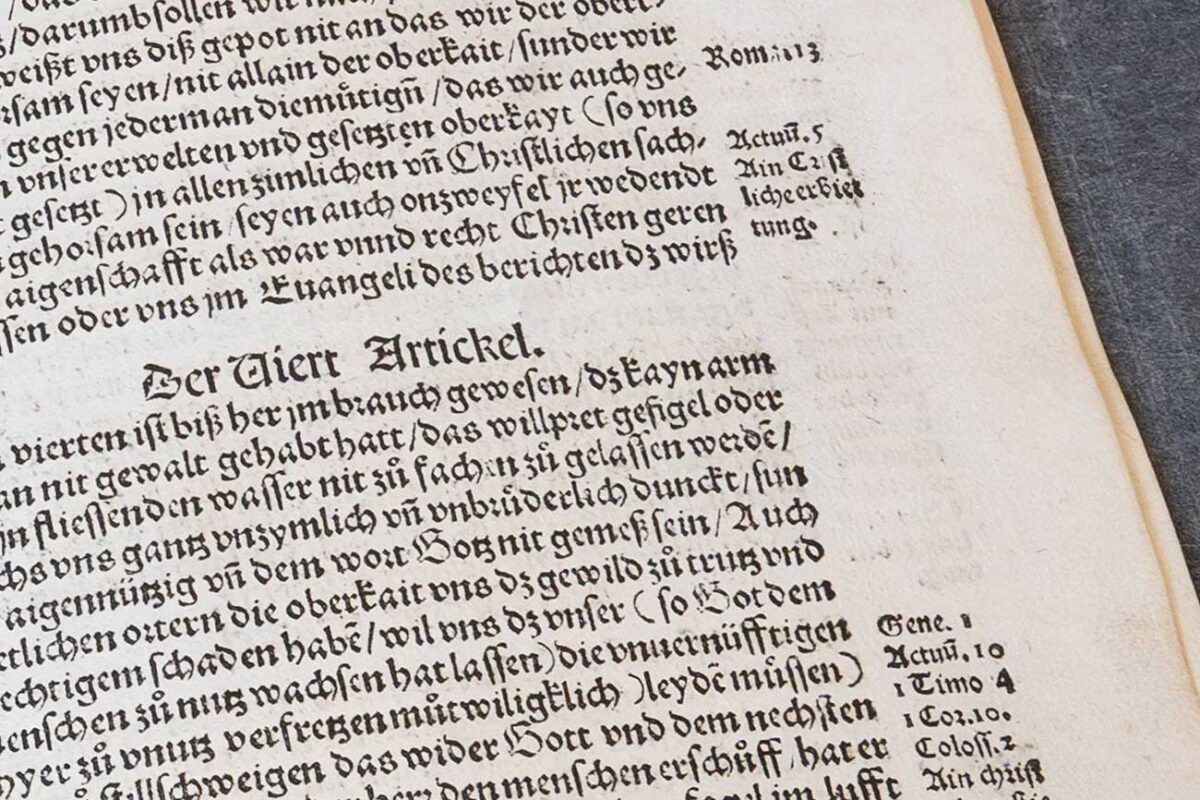 /darumb sollen wir
weißt vns diß gepot nit an das wir der obert-
rsam seyen/nit allain der oberkait/sunder wir
gegen jederman diemůtign̄/das wir auch ge-
Rom. 13
vnser erwelten vnd gesetzten oberkayt (so vns
gesetzt) jn allen zimlichen vn̄ Christlichen sach-
Actuū. 5
gehorsam sein/seyen auch onzweyfel jr wedendt
Ain Crist
aigenschafft als war vnnd recht Christen geren
liche erbiet
ssen oder vns jm Euangeli des berichten dz wirß
tung.
Der Viert Artickel.
vierten ist biß her jm brauch gewesen/dz kayn arm
an nit gewalt gehabt hatt/das willpret gefigel oder
jn fliessenden wasser nit zů fachen zů gelassen werdē/
chs vns gantz vnzymlich vn̄ vnbrůderlich dunckt/sun
aigennützig vn̄ dem wort Gotz nit gemeß sein/Auch
etlichen ortern die oberkait vns dz gewild zů trutz vnd
echtigem schaden habē/wil vns dz vnser (so Got dem
enschen zů nutz wachsen hat lassen) die vnuernüfftigen
Gene. 1
yer zů vnutz verfretzen můtwiligklich) leydē müssen)
Actuū. 10
1 Timo 4
stillschweigen das wider Gott vnd dem nechsten
1 Cor. 10.
den menschen erschůff/hat er
Coloss. 2
im lufft
Ain christ